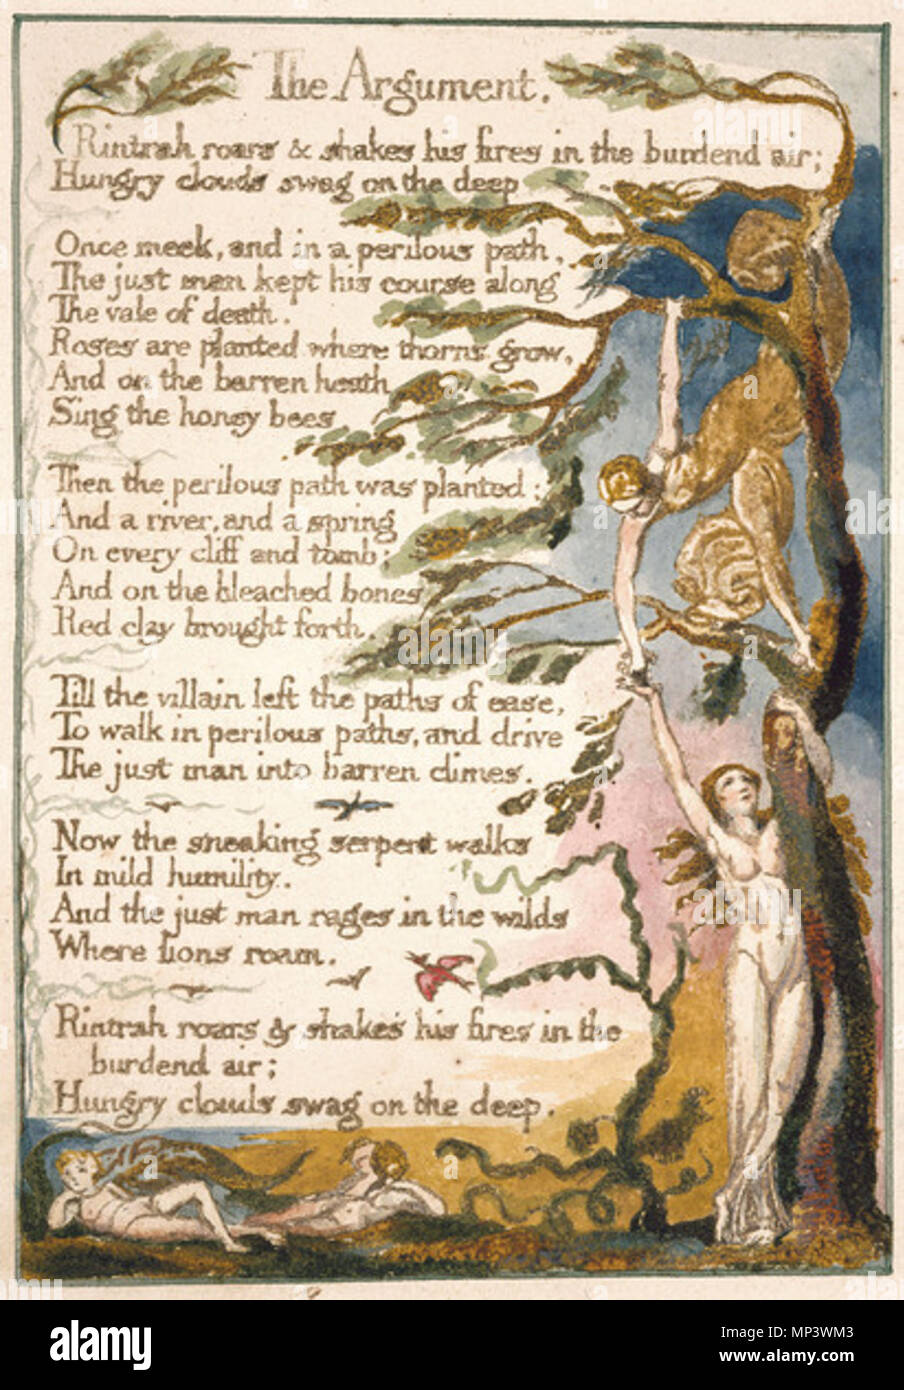 The Argument.
Rintrah roars & shakes his fires in the burdend air;
Hungry clouds swag on the deep
Once meek, and in a perilous path,
The just man kept his course along
The vale of death.
Roses are planted where thorns grow,
And on the barren heath
Sing the honey bees
Then the perilous path was planted:
And a river, and a spring
On every cliff and tomb;
And on the bleached bones
Red clay brought forth.
Till the villain left the paths of ease,
To walk in perilous paths, and drive
The just man into barren climes.
Now the sneaking serpent walks
In mild humility.
And the just man rages in the wilds
Where lions roam.
Rintrah roars & shakes his fires in the
burdend air;
Hungry clouds swag on the deep.
alamy
alamy
Image ID: MP3WM3
www.alamy.com